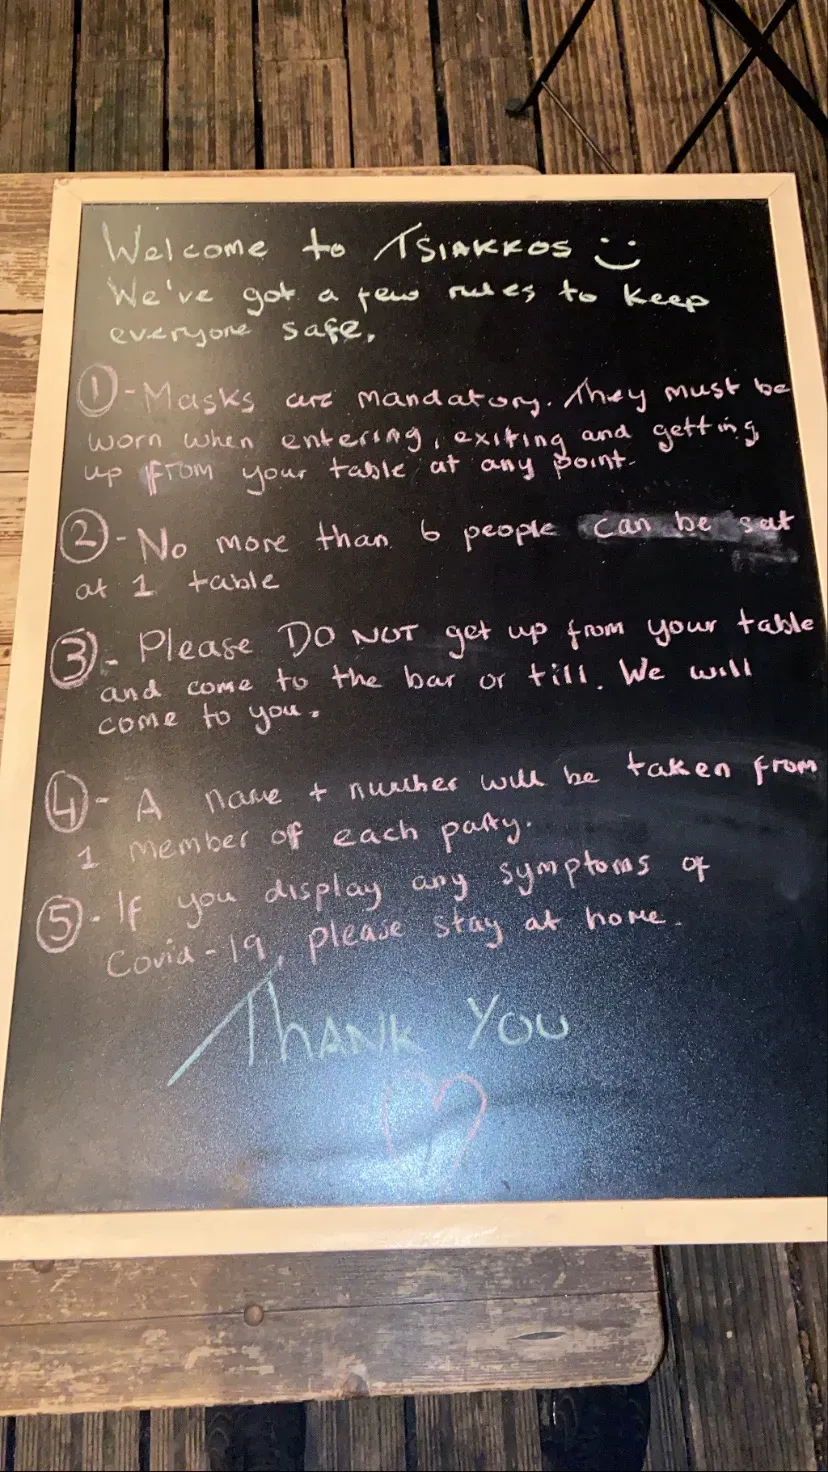 Welcome to TSIAKKOS :)
We've got a few rules to keep
everyone safe.
1 - Masks are mandatory. They must be
worn when entering, exiting and getting
up from your table at any point.
2 - No more than 6 people can be sat
at 1 table
3 - Please DO NOT get up from your table
and come to the bar or till. We will
come to you.
4 - A name + number will be taken from
1 member of each party.
5 - If you display any symptoms of
Covid-19, please stay at home.
THANK YOU